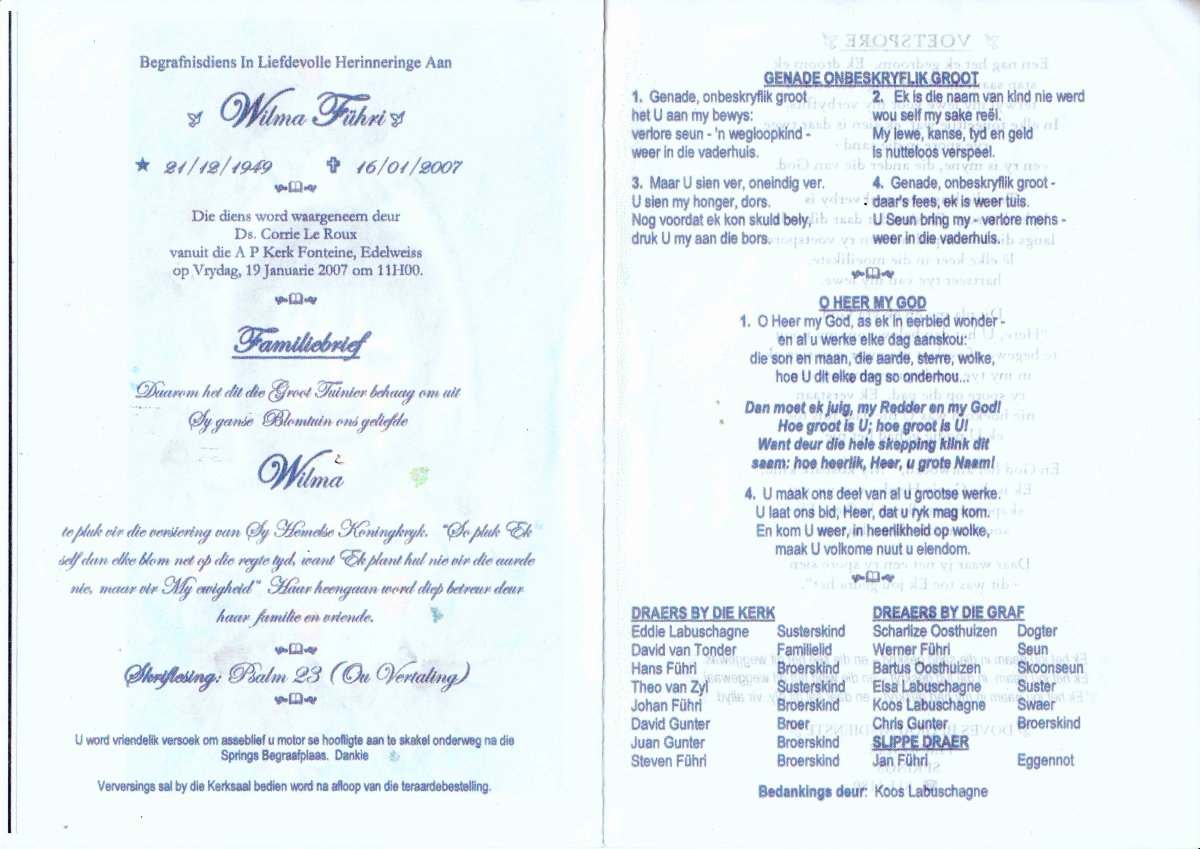 Begrafnisdiens In Liefdevolle Herinneringe Aan
Wilma Führi
21/12/1949 16/01/2007
Die diens word waargeneem deur
Ds. Corrie Le Roux
vanuit die A P Kerk Fonteine, Edelweiss
op Vrydag, 19 Januarie 2007 om 11H00.
Familiebrief
Daarom het dit die Groot Tuinier behaag om uit
Sy ganse Blomtuin ons geliefde
Wilma
te pluk vir die versiering van Sy Hemelse Koningkryk. "So pluk Ek
self dan elke blom net op die regte tyd, want Ek plant hul nie vir die aarde
nie, maar vir My ewigheid" Haar heengaan word diep betreur deur
haar familie en vriende.
Skriflesing: Psalm 23 (Ou Vertaling)
U word vriendelik versoek om asseblief u motor se hoofligte aan te skakel onderweg na die
Springs Begraafplaas. Dankie
Verversings sal by die Kerksaal bedien word na afloop van die teraardebestelling.
GENADE ONBESKRYFLIK GROOT
1. Genade, onbeskryflik groot
het U aan my bewys:
verlore seun - 'n wegloopkind -
weer in die vaderhuis.
2. Ek is die naam van kind nie werd
wou self my sake reël.
My lewe, kanse, tyd en geld
is nutteloos verspeel.
3. Maar U sien ver, oneindig ver.
U sien my honger, dors.
Nog voordat ek kon skuld bely,
druk U my aan die bors.
4. Genade, onbeskryflik groot -
daar's fees, ek is weer tuis.
U Seun bring my - verlore mens -
weer in die vaderhuis.
O HEER MY GOD
1. O Heer my God, as ek in eerbied wonder -
en al u werke elke dag aanskou:
die son en maan, die aarde, sterre, wolke,
hoe U dit elke dag so onderhou...
Dan moet ek juig, my Redder en my God!
Hoe groot is U; hoe groot is U!
Want deur die hele skepping klink dit
saam: hoe heerlik, Heer, u grote Naam!
4. U maak ons deel van al u grootse werke.
U laat ons bid, Heer, dat u ryk mag kom.
En kom U weer, in heerlikheid op wolke,
maak U volkome nuut u eiendom.
DRAERS BY DIE KERK
Eddie Labuschagne Susterskind
David van Tonder Familielid
Hans Führi Broerskind
Theo van Zyl Susterskind
Johan Führi Broerskind
David Gunter Broer
Juan Gunter Broerskind
Steven Führi Broerskind
DREAERS BY DIE GRAF
Scharlize Oosthuizen Dogter
Werner Führi Seun
Bartus Oosthuizen Skoonseun
Elsa Labuschagne Suster
Koos Labuschagne Swaer
Chris Gunter Broerskind
SLIPPE DRAER
Jan Führi Eggennot
Bedankings deur: Koos Labuschagne